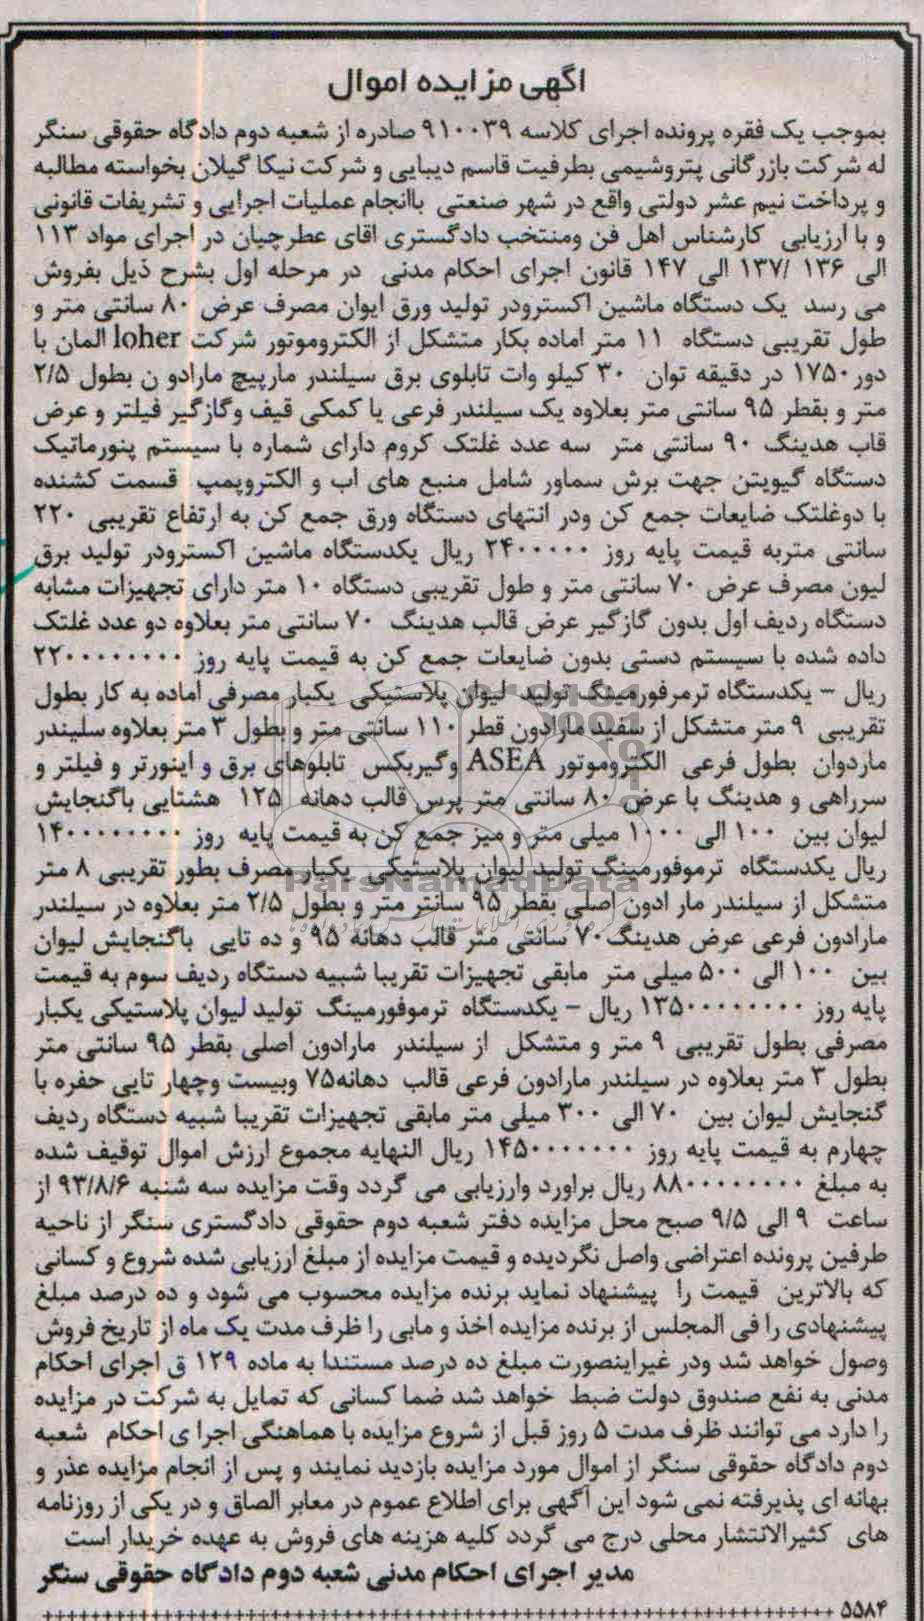 اگهی مزایده اموال
بموجب یک فقره پرونده اجرای کلاسه ۹۱۰۰۳۹ صادره از شعبه دوم دادگاه حقوقی سنگر
له شرکت بازرگانی پتروشیمی بطرفیت قاسم دیبایی و شرکت نیکا گیلان بخواسته مطالبه
و پرداخت نیم عشر دولتی واقع در شهر صنعتی باانجام عملیات اجرایی و تشریفات قانونی
و با ارزیابی کارشناس اهل فن ومنتخب دادگستری اقای عطرچیان در اجرای مواد ۱۱۳
الی ۱۳۶ /۱۳۷ الی ۱۴۷ قانون اجرای احکام مدنی در مرحله اول بشرح ذیل بفروش
می رسد یک دستگاه ماشین اکسترودر تولید ورق ایوان مصرف عرض ۸۰ سانتی متر و
طول تقریبی دستگاه ۱۱ متر اماده بکار متشکل از الکتروموتور شرکت loher المان با
دور۱۷۵۰ در دقیقه توان ۳۰ کیلو وات تابلوی برق سیلندر مارپیچ مارادو ن بطول ۲/۵
متر و بقطر ۹۵ سانتی متر بعلاوه یک سیلندر فرعی یا کمکی قیف وگازگیر فیلتر و عرض
قاب هدینگ ۹۰ سانتی متر سه عدد غلتک کروم دارای شماره با سیستم پنورماتیک
دستگاه گیویتن جهت برش سماور شامل منبع های اب و الکتروپمپ قسمت کشنده
با دوغلتک ضایعات جمع کن ودر انتهای دستگاه ورق جمع کن به ارتفاع تقریبی ۲۲۰
سانتی متربه قیمت پایه روز ۲۴۰۰۰۰۰ ریال یکدستگاه ماشین اکسترودر تولید برق
لیون مصرف عرض ۷۰ سانتی متر و طول تقریبی دستگاه ۱۰ متر دارای تجهیزات مشابه
دستگاه ردیف اول بدون گازگیر عرض قالب هدینگ ۷۰ سانتی متر بعلاوه دو عدد غلتک
داده شده با سیستم دستی بدون ضایعات جمع کن به قیمت پایه روز ۲۲۰۰۰۰۰۰۰۰
ریال – یکدستگاه ترمرفورمینگ تولید لیوان پلاستیکی یکبار مصرفی اماده به کار بطول
تقریبی ۹ متر متشکل از سفید مارادون قطر ۱۱۰ سانتی متر و بطول ۳ متر بعلاوه سلیندر
ماردوان بطول فرعی الکتروموتور ASEA وگیربکس تابلوهای برق و اینورتر و فیلتر و
سرراهی و هدینگ با عرض ۸۰ سانتی متر پرس قالب دهانه ۱۲۵ هشتایی باگنجایش
لیوان بین ۱۰۰ الی ۱۰۰۰ میلی متر و میز جمع کن به قیمت پایه روز ۱۴۰۰۰۰۰۰۰۰
ریال یکدستگاه ترموفورمینگ تولید لیوان پلاستیکی یکبار مصرف بطور تقریبی ۸ متر
متشکل از سیلندر مار ادون اصلی بقطر ۹۵ سانتر متر و بطول ۲/۵ متر بعلاوه در سیلندر
مارادون فرعی عرض هدینگ۷۰ سانتی متر قالب دهانه ۹۵ و ده تایی باگنجایش لیوان
بین ۱۰۰ الی ۵۰۰ میلی متر مابقی تجهیزات تقریبا شبیه دستگاه ردیف سوم به قیمت
پایه روز ۱۳۵۰۰۰۰۰۰۰۰ ریال – یکدستگاه ترموفورمینگ تولید لیوان پلاستیکی یکبار
مصرفی بطول تقریبی ۹ متر و متشکل از سیلندر مارادون اصلی بقطر ۹۵ سانتی متر
بطول ۳ متر بعلاوه در سیلندر مارادون فرعی قالب دهانه۷۵ وبیست وچهار تایی حفره با
گنجایش لیوان بین ۷۰ الی ۳۰۰ میلی متر مابقی تجهیزات تقریبا شبیه دستگاه ردیف
چهارم به قیمت پایه روز ۱۴۵۰۰۰۰۰۰۰ ریال النهایه مجموع ارزش اموال توقیف شده
به مبلغ ۸۸۰۰۰۰۰۰۰۰ ریال براورد وارزیابی می گردد وقت مزایده سه شنبه ۹۳/۸/۶ از
ساعت ۹ الی ۹/۵ صبح محل مزایده دفتر شعبه دوم حقوقی دادگستری سنگر از ناحیه
طرفین پرونده اعتراضی واصل نگردیده و قیمت مزایده از مبلغ ارزیابی شده شروع و کسانی
که بالاترین قیمت را پیشنهاد نماید برنده مزایده محسوب می شود و ده درصد مبلغ
پیشنهادی را فی المجلس از برنده مزایده اخذ و مابی را ظرف مدت یک ماه از تاریخ فروش
وصول خواهد شد ودر غیراینصورت مبلغ ده درصد مستندا به ماده ۱۲۹ ق اجرای احکام
مدنی به نفع صندوق دولت ضبط خواهد شد ضما کسانی که تمایل به شرکت در مزایده
را دارد می توانند ظرف مدت ۵ روز قبل از شروع مزایده با هماهنگی اجرا ی احکام شعبه
دوم دادگاه حقوقی سنگر از اموال مورد مزایده بازدید نمایند و پس از انجام مزایده عذر و
بهانه ای پذیرفته نمی شود این آگهی برای اطلاع عموم در معابر الصاق و در یکی از روزنامه
های کثیرالانتشار محلی درج می گردد کلیه هزینه های فروش به عهده خریدار است
مدیر اجرای احکام مدنی شعبه دوم دادگاه حقوقی سنگر
۵۵۸۴
ParsNamadData